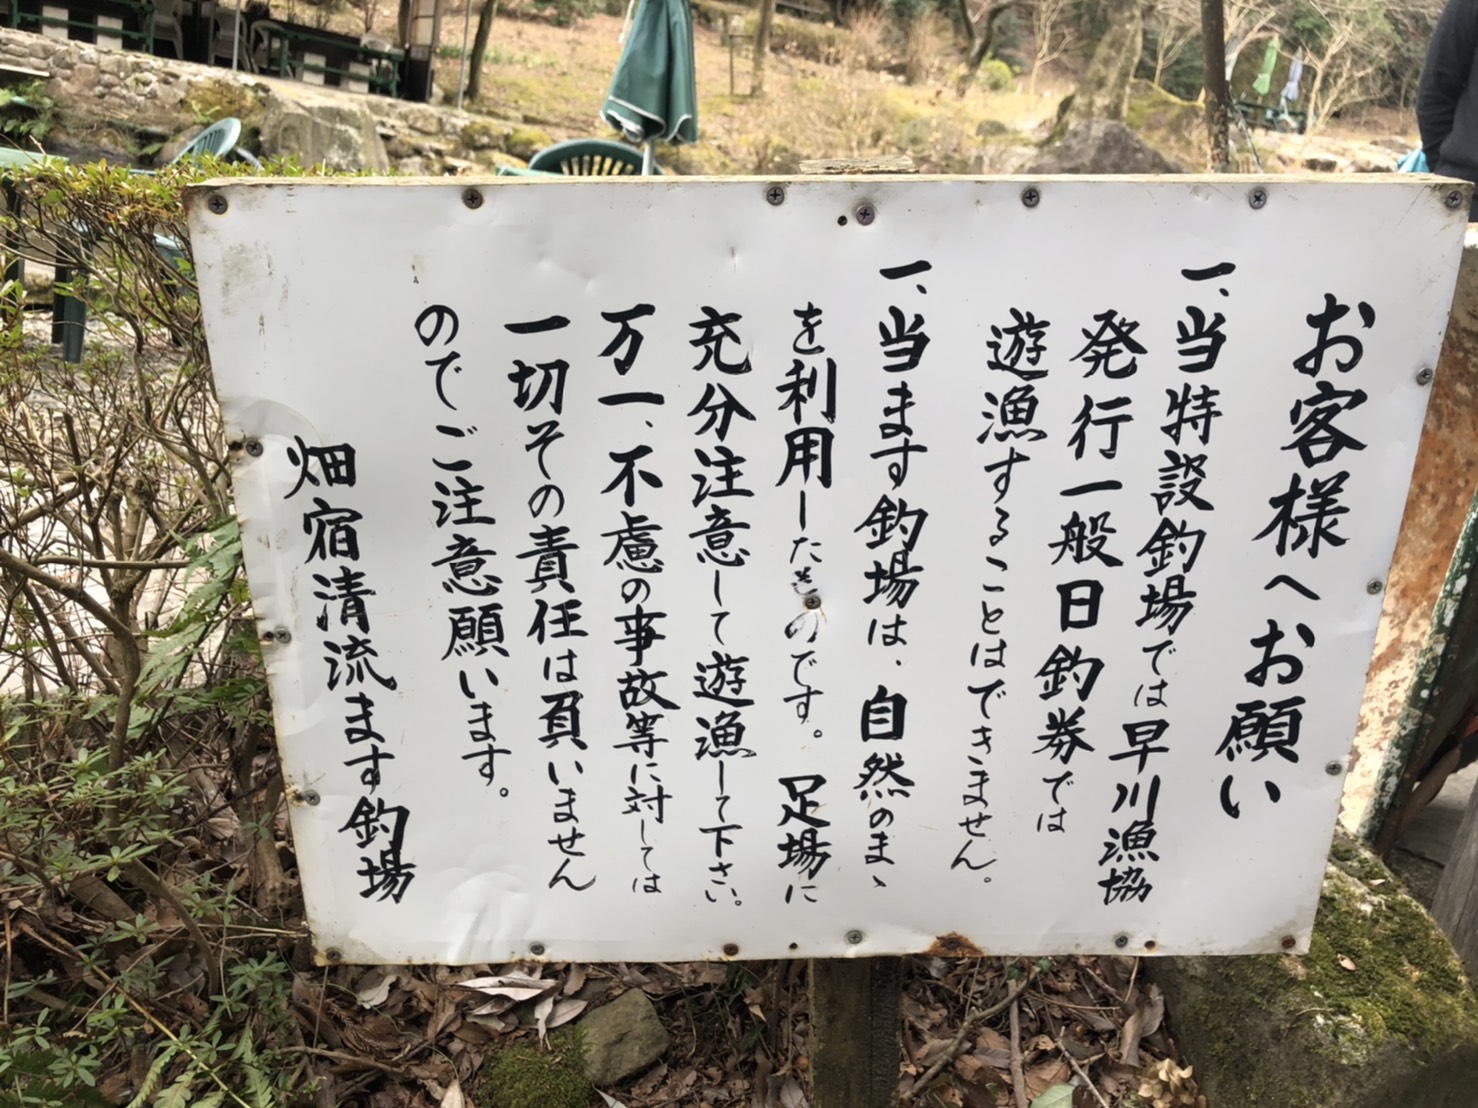 お客様へお願い
一、当特設釣場では早川漁協
発行一般日釣券では
遊漁することはできません。
一、当ます釣場は、自然のまゝ
を利用したものです。足場に
充分注意して遊漁して下さい。
万一、不慮の事故等に対しては
一切その責任は負いません
のでご注意願います。
畑宿清流ます釣場